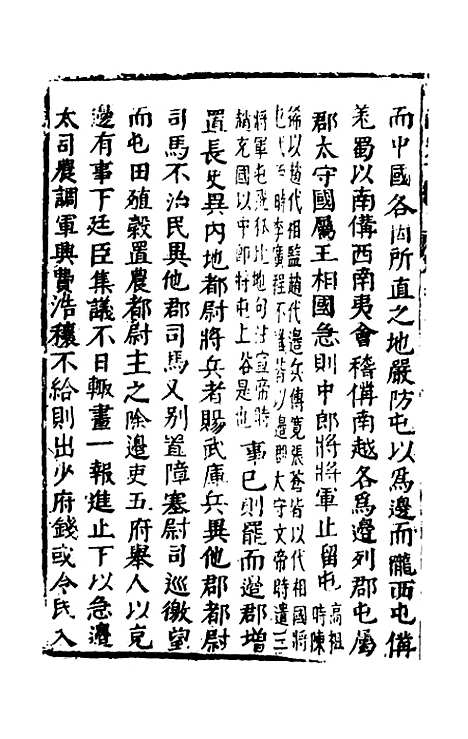 而中國各因所直之地嚴防屯以爲邊而隴西屯備
羌蜀以南備西南夷會稽備南越各爲邊列郡屯屬
郡太守國屬王相國急則中郎將將軍止留屯高祖時陳
豨以趙代相監趙代邊兵傅寬張蒼皆以相國將
屯代景時李廣程不識皆以邊郡太守文帝時遣三
將軍屯飛狐北地句注宣帝時
趙充國以中郎將屯上谷是也
事已則罷而邊郡增
置長史異內地都尉將兵者賜武庫兵異他郡都尉
司馬不治民異他郡司馬又別置障塞尉司巡徼望
而屯田殖穀置農都尉主之除邊吏五府舉人以克
邊有事下廷臣集議不日輙畫一報進止下以急邊
大司農調軍興費浩穰不給則出少府錢或令民入